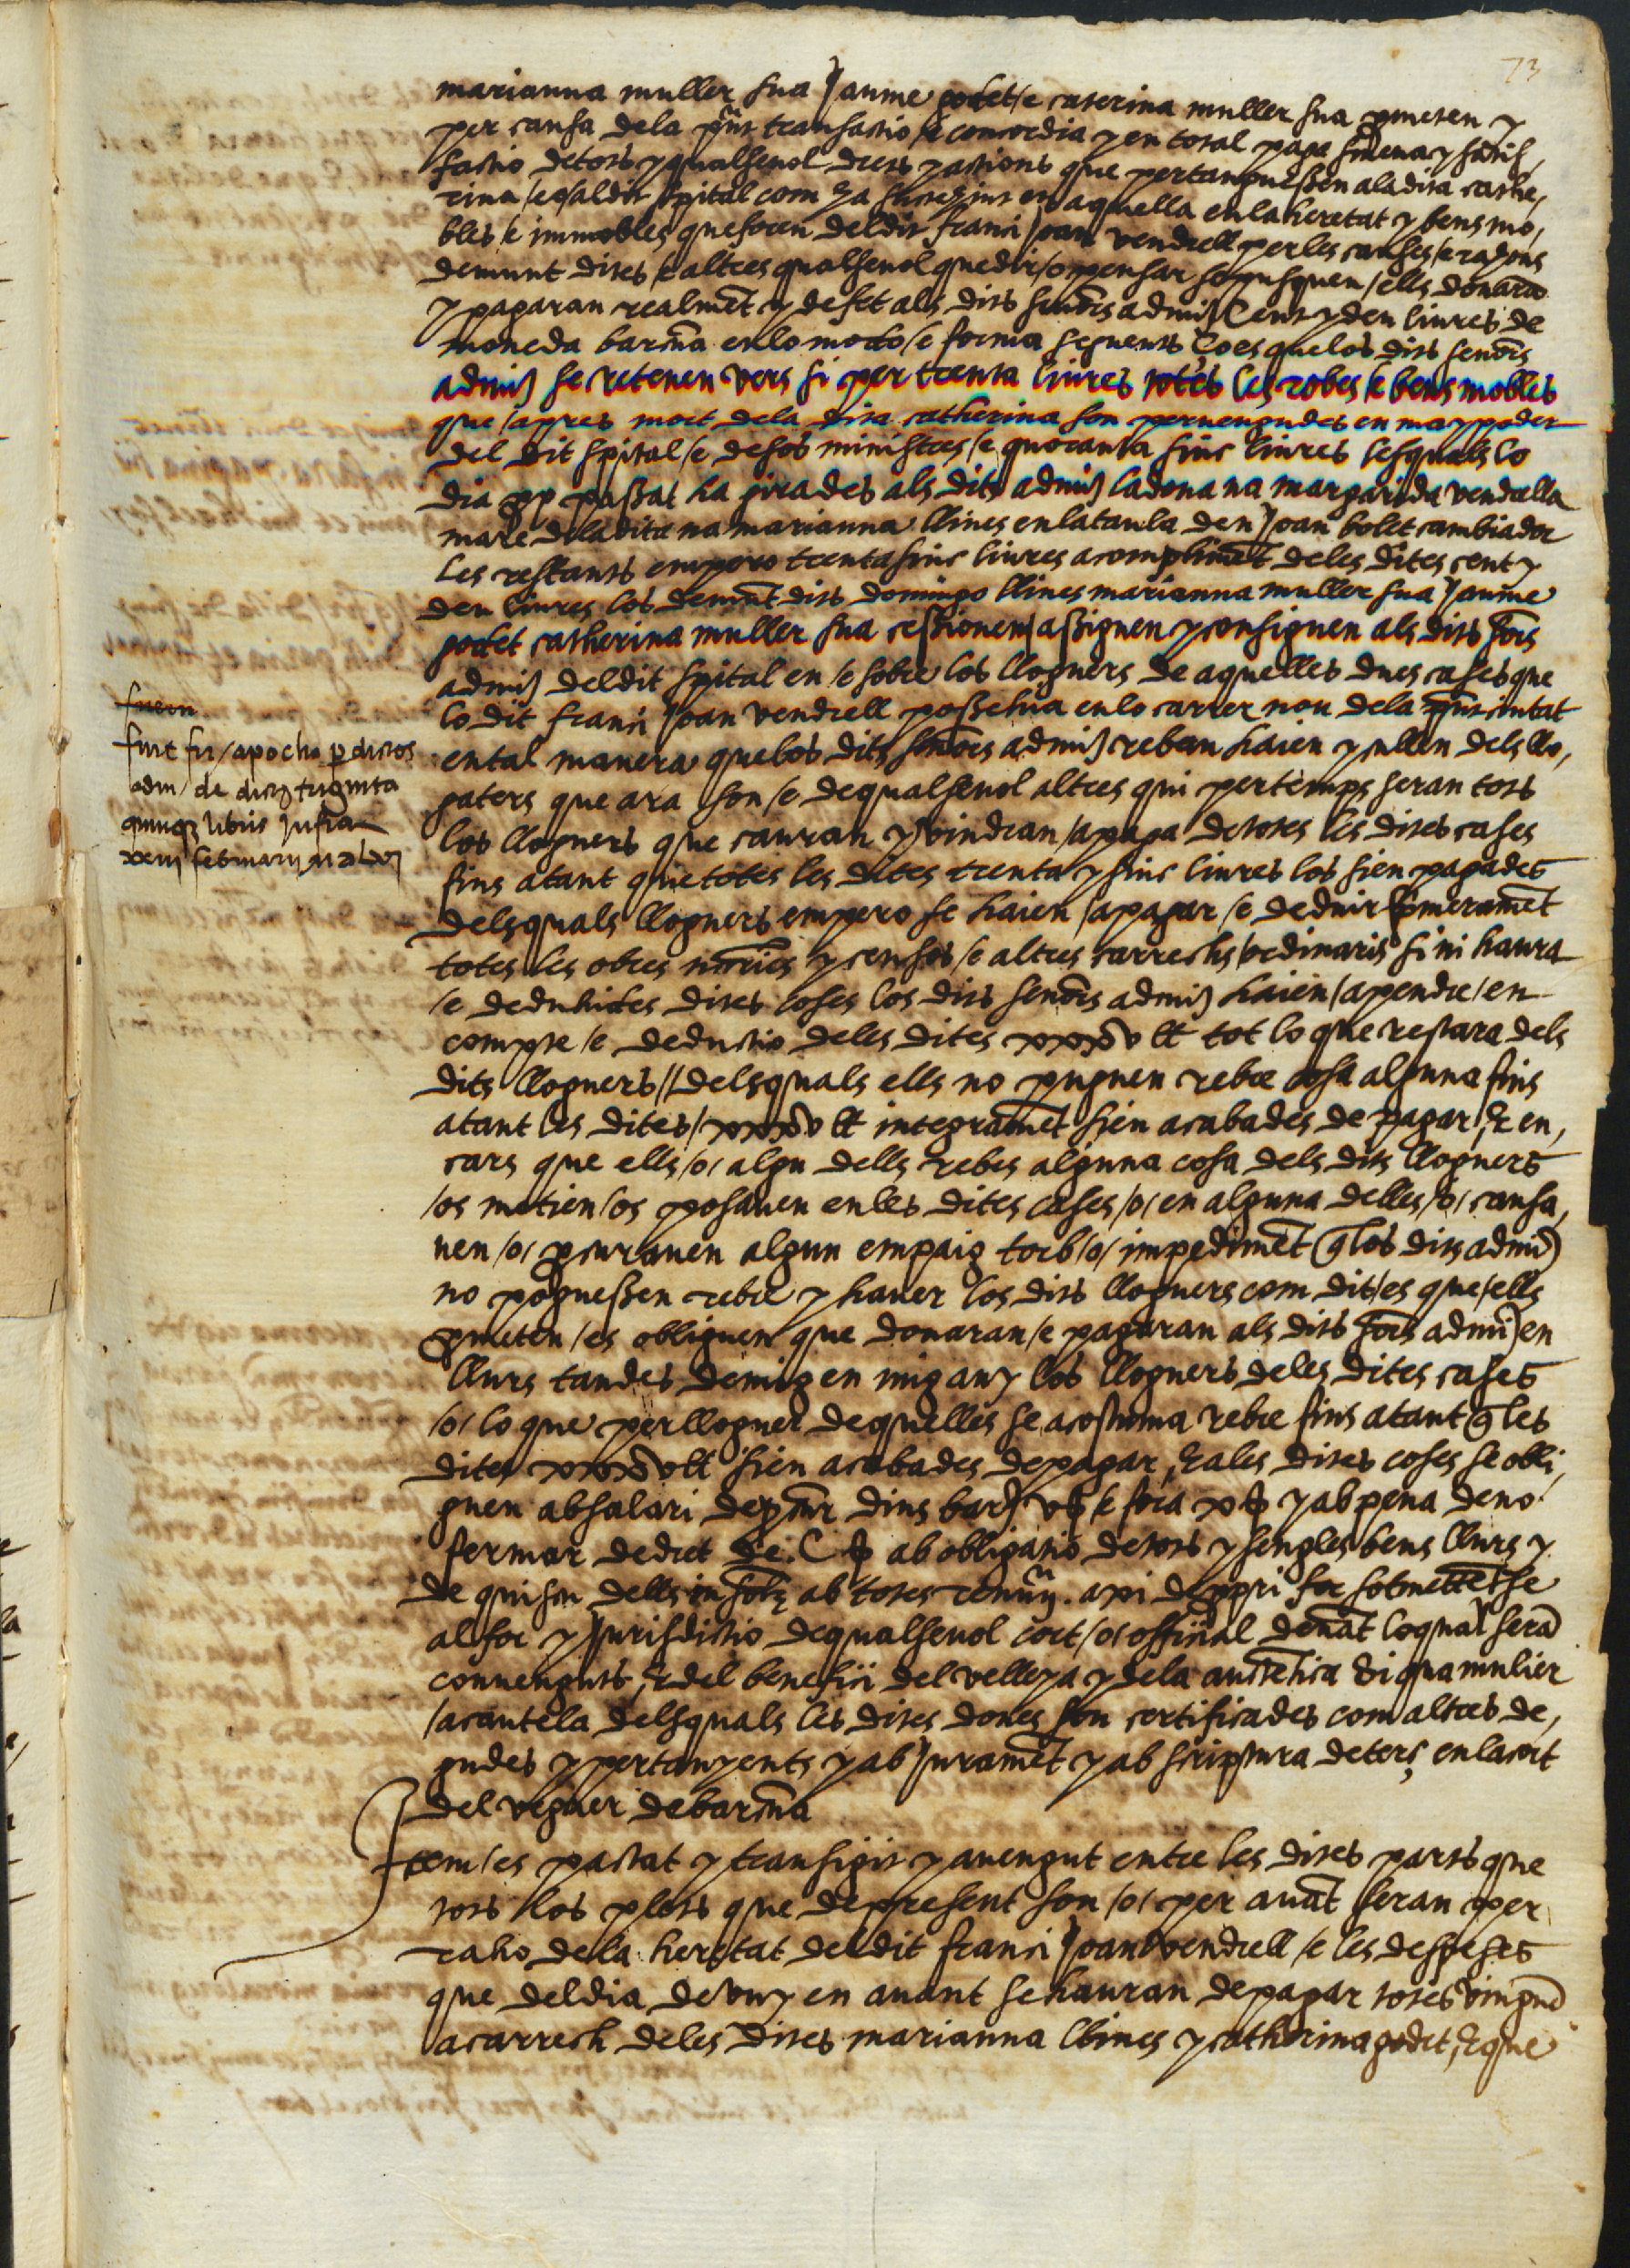 73
marianna muller sua Jaume godet /e caterina muller sua pmeten y
per causa dela pnt transactio /e concordia y en total paga smena y satis,
factio de tots y qualsevol drets y actions que pertanguessen ala dita cathe,
rina /e o/ al dit spital com ha succehint en aquella en la heretat y bens mo,
bles /e immobles que foren del dit franci Joan vendrell per les causes /e rahons
demunt dites /e altres qualsevol que dir /o pensar se pusquen / ells donara
y pagaran realmet y de fet als dits senors admis Cent y deu liures de
moneda barna en lo modo /e forma seguents Ço es que los dits senors
admis se retenen vers si per trenta liures totes les robes /e bens mobles
que /apres mort dela dita catherina son pervengudes en ma y poder
del dit spital /e de sos ministres /e quoranta sinc liures les quals lo
dia pp passat ha girades als dits admis la dona na margarida vendrella
mare dela dita na marianna llines en la taula den Joan bolet cambiador
Les restants empero trenta sinc liures a complimet deles dites cent y
deu liures los demut dits domingo llines marianna muller sua Jaume
godet catherina muller sua cessionen / assignen y consignen als dits sors
admis del dit spital en /e sobre los lloguers de aquelles dues cases que
lo dit franci Joan vendrell possehia en lo carrer nou dela pnt ciutat
en tal manera que los dits senors admis reban haien y cullen dels llo,
gaters que ara son /e de qualsevol altres qui per temps seran tots
los lloguers que cauran y vindran /a paga de totes les dites cases
fins atant que totes les dites trenta y sinc liures los sien pagades
dels quals lloguers empero se haien /a pagar /e deduir pmeramet
totes les obres nries y censos /e altres carrechs ordinaris si ni haura
/e deduhides dites coses los dits senors admis haien /a pendre /en
compte /e deductio deles dites xxxv ll tot lo que restara dels
dits lloguers // dels quals ells no puguen rebre cosa alguna fins
atant les dites /xxxv ll integramet sien acabades de pagar, E en,
cars que ells /o/ algu dells rebes alguna cosa dels dits lloguers
/os metien /os posaven en les dites cases /o/ en alguna delles /o/ causa,
ven /o/ pcuraven algun empaig torb /o/ impedimet q los dits admis
no poguessen rebre y haver los dits lloguers com dit /es que / ells
pmeten /es obliguen que donaran /e pagaran als dits sors admis en
llurs tandes de mig en mig any los lloguers deles dites cases
/o/ lo que per lloguer de quelles se acostuma rebre fins atant q les
dites xxxv ll sien acabades de pagar, E ales dites coses se obli,
guen ab salari de pcur dins bar v s /e fora x s y ab pena de no
fermar de dret de .C s ab obligatio de tots y sengles bens llurs y
de quiscu dells in solu ab totes renun. axi de ppri for sotmettetse
al for y Jurisdictio de qualsevol cort /o/ official devat lo qual sera
convenguts, E del benefici del velleya y dela autetica Si qua mulier
/a cautela dels quals les dites dones son certificades com altres de,
gudes y pertanyents y ab Jurament y ab scriptura de terç en la cort
del veguer de barna
Item /es pactat y transigit y avengut entre les dites parts que
tots los plets que de present son /o/ per avat seran per
raho dela heretat del dit franci Joan vendrell /e les despeses
que del dia de vuy en avant se hauran de pagar totes vingue
a carrech deles dites marianna llines y catherina godet, E que
fuern
fuit fir /apocha p dictos
adm / de dictis triginta
quinq libris Jnfra
xxiij februarij